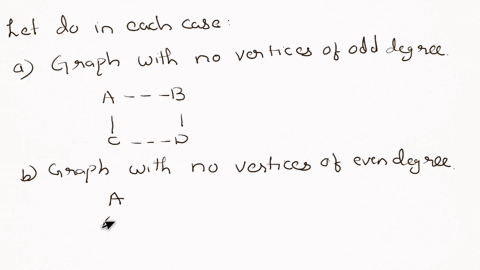 Let do in each case:
a) Graph with no vertices of odd degree.
A --- B
| |
C --- D
b) Graph with no vertices of even degree.
A